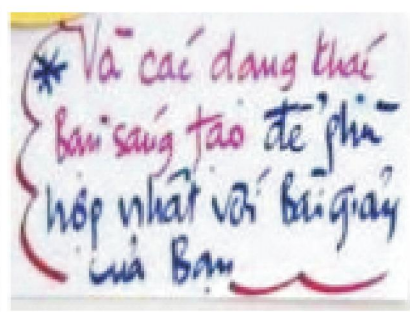 * Và các dạng thái
Bạn sáng tạo để phù
hợp nhất với Bài giảng
của Bạn